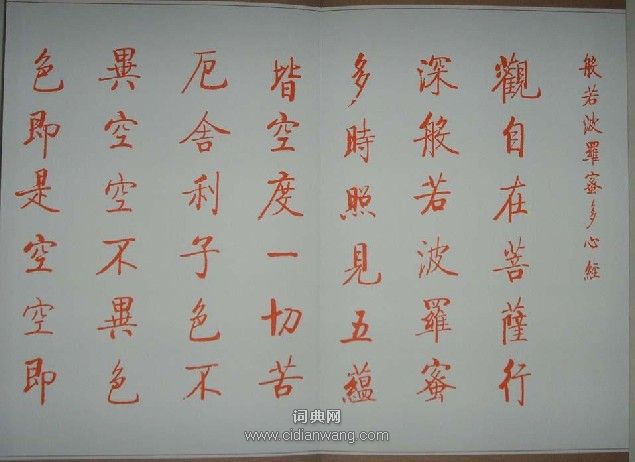 般若波羅蜜多心經
觀自在菩薩行
深般若波羅蜜
多時照見五蘊
皆空度一切苦
厄舍利子色不
異空空不異色
色即是空空即
词典网
www.cidianwang.com